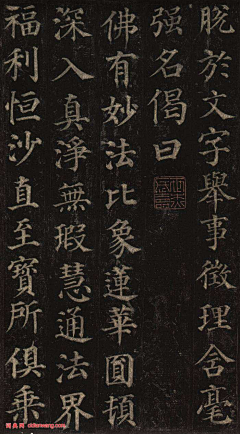 脱於文字舉事徵理含毫
强名偈曰
佛有妙法比象蓮華圓頓
深入真淨無瑕慧通法界
福利恒沙直至寳所俱乗